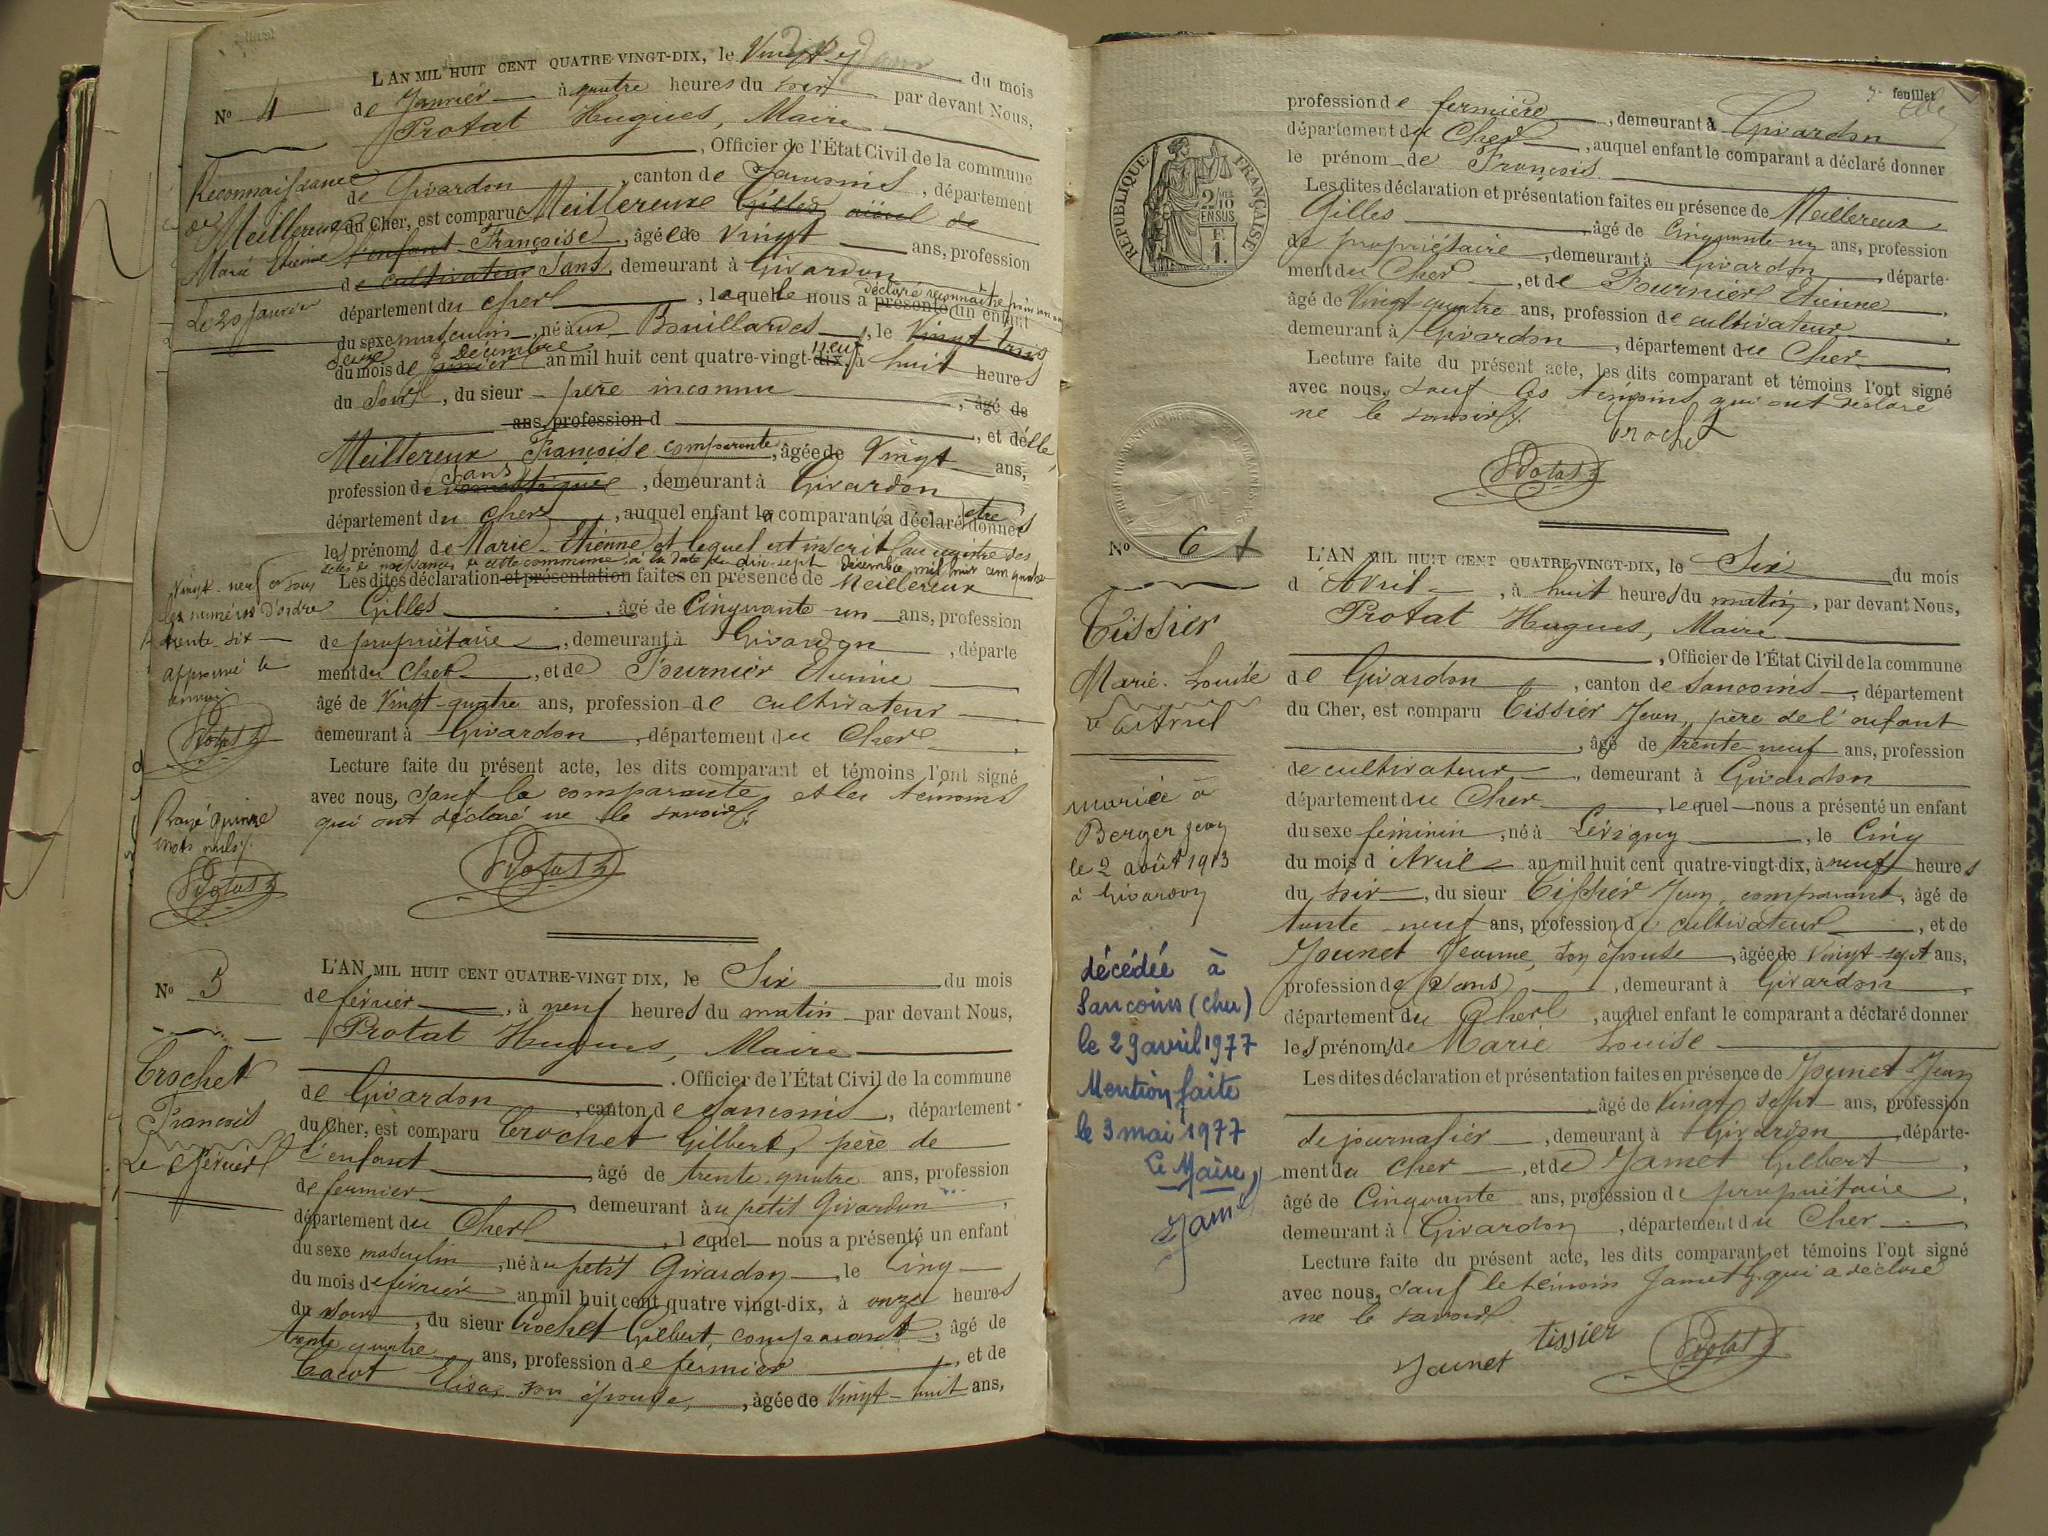 L'AN MIL HUIT CENT QUATRE-VINGT-DIX, le Vingt du mois
No 4
de Janvier à quatre heures du soir par devant Nous,
Protat Hugues, Maire
, Officier de l'État Civil de la commune
de Givardon, canton de Sancoins, département
du Cher, est comparue Meillereux Gilles aïeul de
l'enfant Françoise, âgée de Vingt ans, profession
de cultivateur Sans, demeurant à Givardon
département du Cher, laquelle nous a présenté un enfant
déclaré reconnaître pour son
du sexe masculin, né aux Bouillards, le Vingt trois
seize décembre neuf
du mois de janvier an mil huit cent quatre-vingt-dix, à huit heures
du Soir, du sieur père inconnu, âgé de
ans, profession d
, et de elle,
Meillereux Françoise comparante, âgée de Vingt ans,
profession de domestique Sans, demeurant à Givardon
département du Cher, auquel enfant la comparante a déclaré donner être
les prénoms de Marie-Etienne et lequel est inscrit au registre des
actes de naissances de cette commune à la date du dix-sept décembre mil huit cent quatre
Les dites déclaration et présentation faites en présence de Meillereux
Gilles, âgé de Cinquante-un ans, profession
de propriétaire, demeurant à Givardon, départe
ment du Cher, et de Fournier Etienne
âgé de Vingt-quatre ans, profession de cultivateur
demeurant à Givardon, département du Cher
Lecture faite du présent acte, les dits comparant et témoins l'ont signé
avec nous, Sauf la comparante et les témoins
qui ont déclaré ne le savoir.
Protat
Reconnaissance
de Meillereux
Marie Etienne
Le 20 Janvier
Vingt-neuf et sous
les numéros d'ordre
trente-six
approuvé le
renvoi
Protat
Rayé quinze
mots nuls
Protat
No 5
Crochet
François
Le 6 février
L'AN MIL HUIT CENT QUATRE-VINGT DIX, le Six du mois
de février, à neuf heures du matin par devant Nous,
Protat Hugues, Maire
. Officier de l'État Civil de la commune
de Givardon, canton de Sancoins, département
du Cher, est comparu Crochet Gilbert, père de
l'enfant, âgé de trente-quatre ans, profession
de fermier, demeurant au petit Givardon,
département du Cher, lequel nous a présenté un enfant
du sexe masculin, né au petit Givardon, le Cinq
du mois de février an mil huit cent quatre vingt-dix, à onze heures
du Soir, du sieur Crochet Gilbert, comparant, âgé de
trente quatre ans, profession de fermier, et de
Cacot Elisa, son épouse, âgée de Vingt-huit ans,
feuillet
profession de fermière, demeurant à Givardon
département du Cher, auquel enfant le comparant a déclaré donner
le prénom de François.
Les dites déclaration et présentation faites en présence de Meillereux
Gilles, âgé de Cinquante-un ans, profession
de propriétaire, demeurant à Givardon, départe-
ment du Cher, et de Fournier Etienne,
âgé de Vingt-quatre ans, profession de cultivateur,
demeurant à Givardon, département du Cher.
Lecture faite du présent acte, les dits comparant et témoins l'ont signé
avec nous, Sauf les témoins qui ont déclaré
ne le savoir.
Crochet
Protat
RÉPUBLIQUE FRANÇAISE
2/10 EN SUS
F. 1.
No 6
Tissier
Marie-Louise
Le 6 Avril
mariée à
Berger Jean
le 2 août 1913
à Givardon
décédée à
Sancoins (cher)
le 29 avril 1977
Mention faite
le 3 mai 1977
Le Maire,
L'AN MIL HUIT CENT QUATRE-VINGT-DIX, le Six du mois
d'Avril, à huit heures du matin, par devant Nous,
Protat Hugues, Maire
, Officier de l'État Civil de la commune
de Givardon, canton de Sancoins, département
du Cher, est comparu Tissier Jean, père de l'enfant
, âgé de trente-neuf ans, profession
de cultivateur, demeurant à Givardon
département du Cher, lequel nous a présenté un enfant
du sexe féminin, né à Lévigny, le Cinq
du mois d'Avril an mil huit cent quatre-vingt-dix, à neuf heures
du soir, du sieur Tissier Jean, comparant, âgé de
trente-neuf ans, profession de cultivateur, et de
Jounet Jeanne, son épouse, âgée de Vingt-sept ans,
profession de (Sans), demeurant à Givardon,
département du Cher, auquel enfant le comparant a déclaré donner
les prénoms de Marie Louise
Les dites déclaration et présentation faites en présence de Jounet Jean
, âgé de Vingt sept ans, profession
de journalier, demeurant à Givardon, départe-
ment du Cher, et de Jamet Gilbert,
âgé de Cinquante ans, profession de propriétaire,
demeurant à Givardon, département du Cher.
Lecture faite du présent acte, les dits comparant et témoins l'ont signé
avec nous, Sauf le témoin Jamet G. qui a déclaré
ne le savoir.
Jounet tissier Protat